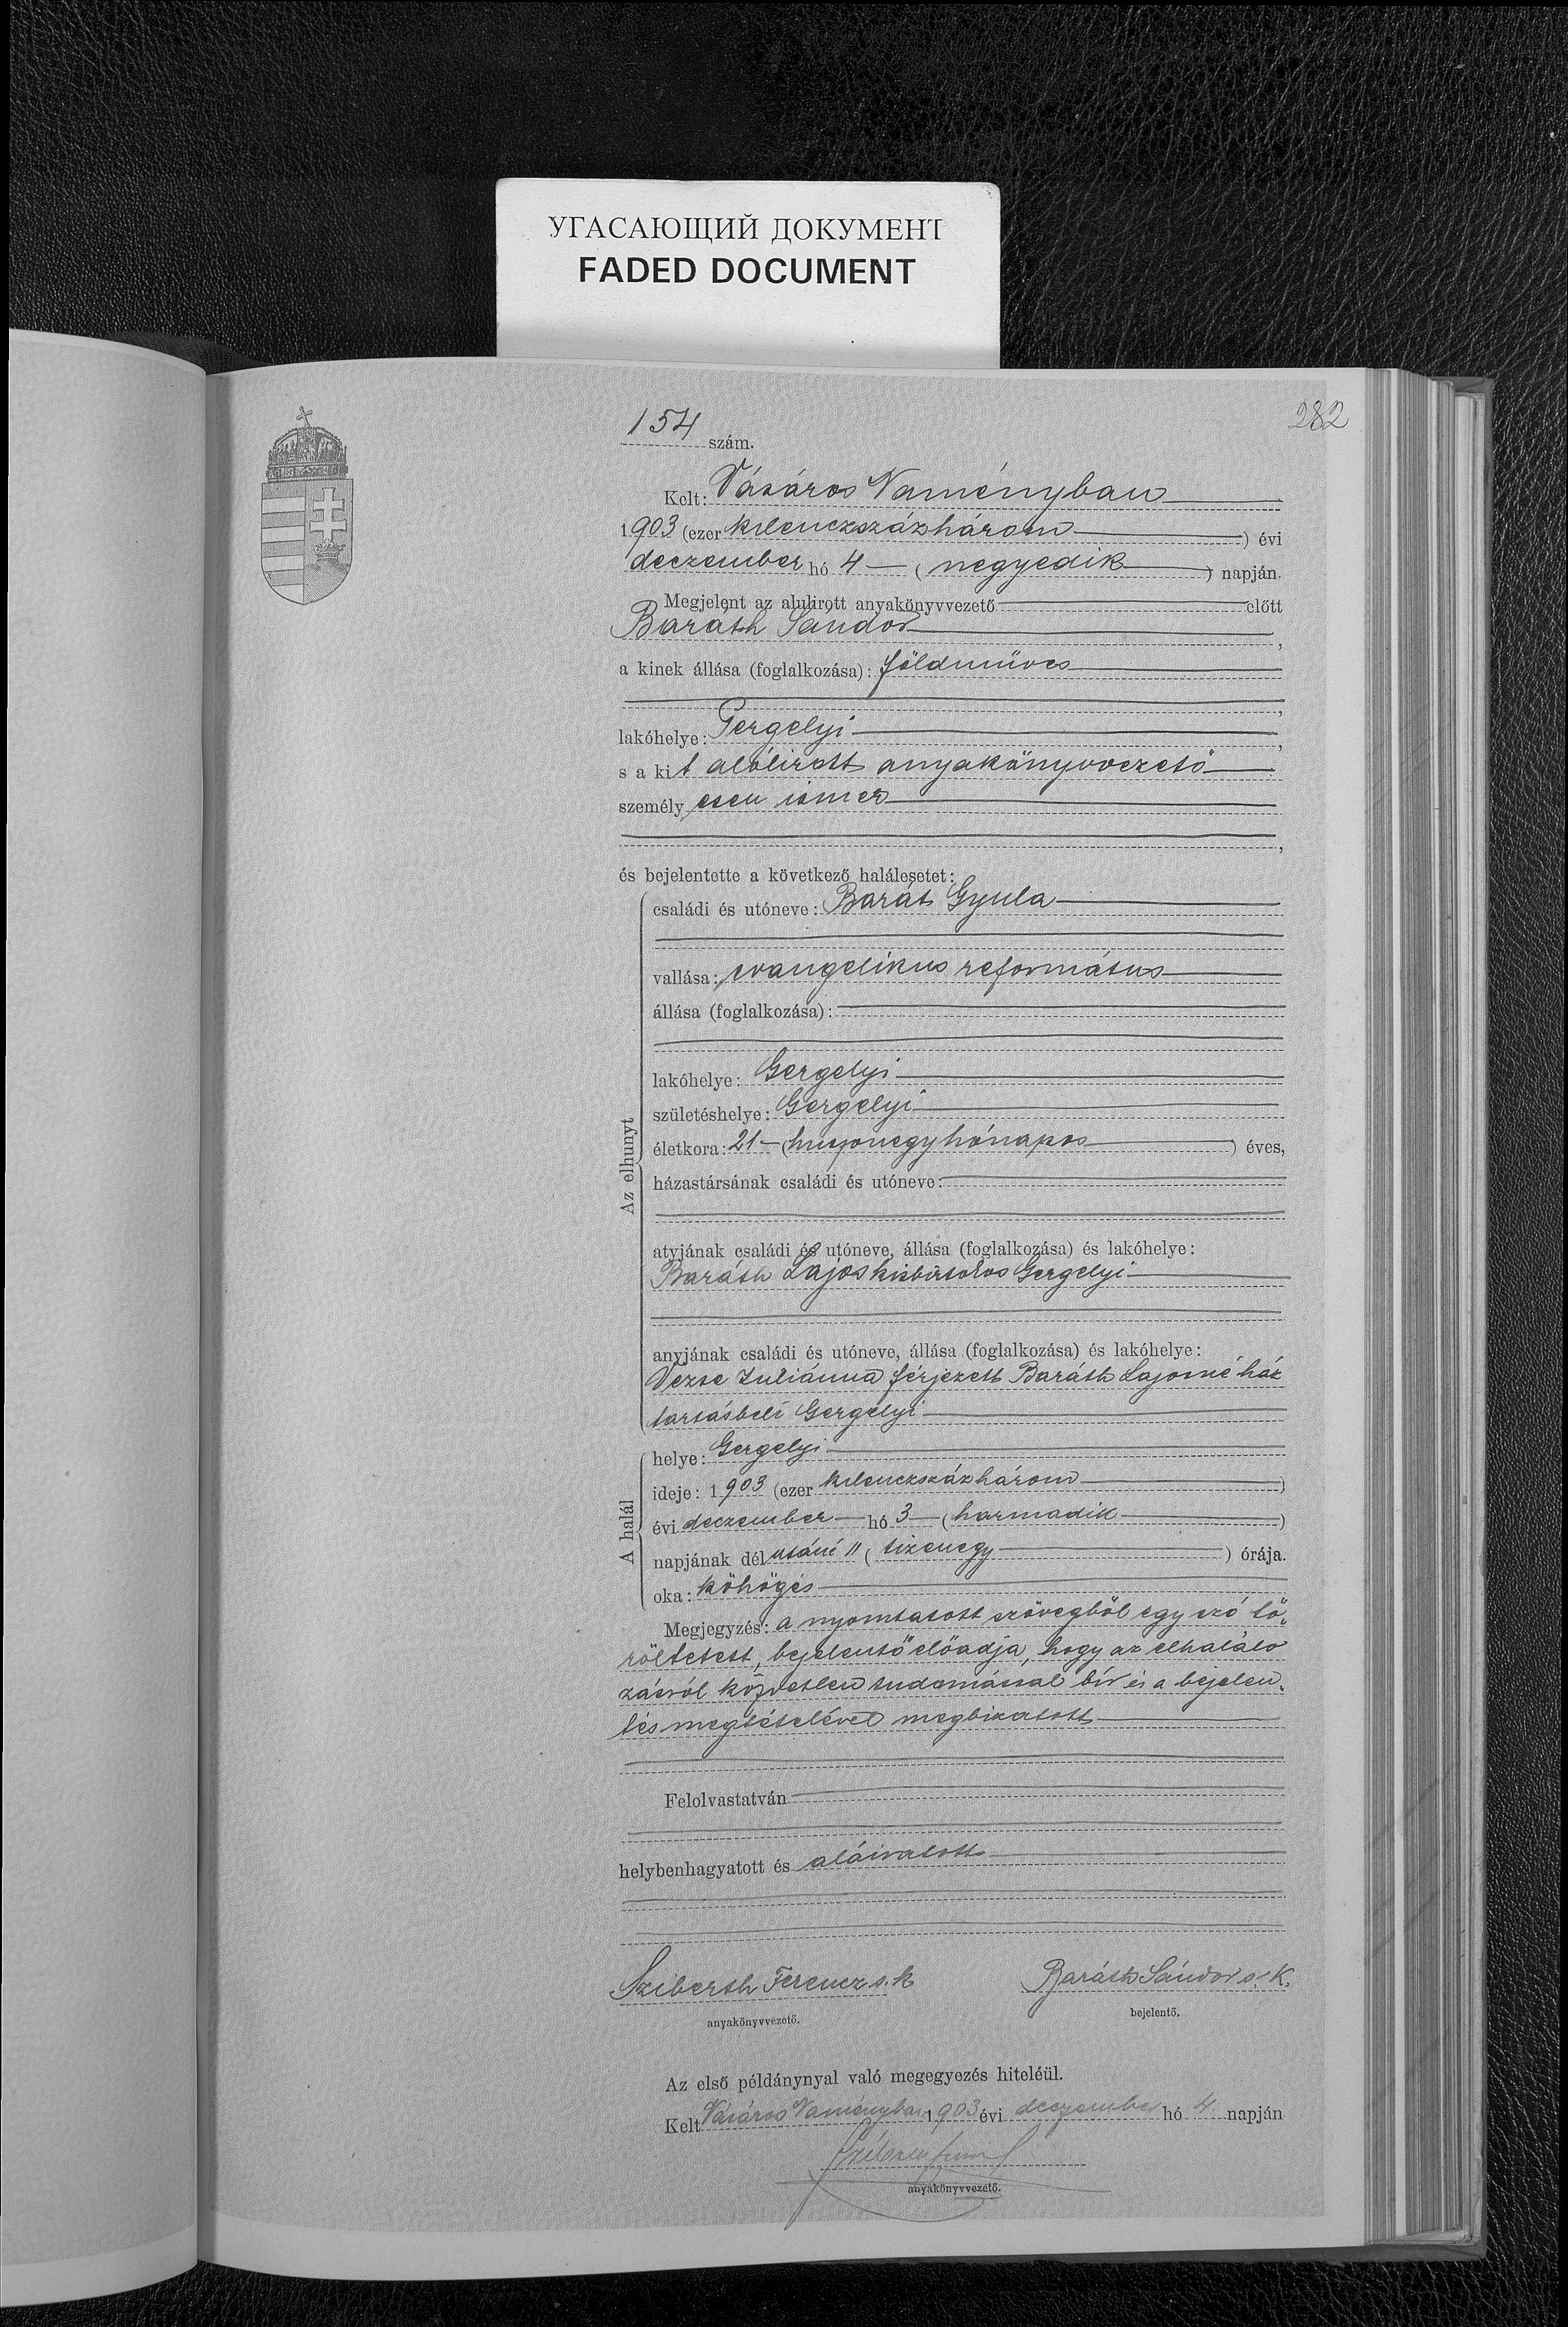 УГАСАЮЩИЙ ДОКУМЕНТ
FADED DOCUMENT
282
154 szám.
Kelt: Vásáros Naményban
1903 (ezer kilenczszázhárom) évi
deczember hó 4 (negyedik) napján.
Megjelent az alulirott anyakönyvvezető előtt
Baráth Sándor,
a kinek állása (foglalkozása): földmüves
,
lakóhelye: Gergelyi,
s a kit alólirott anyakönyvvezető
személyesen ismer
,
és bejelentette a következő halálesetet:
Az elhunyt
családi és utóneve: Barát Gyula
vallása: evangelikus református
állása (foglalkozása):
lakóhelye: Gergelyi
születéshelye: Gergelyi
életkora: 21 (huszonegy hónapos) éves,
házastársának családi és utóneve:
atyjának családi és utóneve, állása (foglalkozása) és lakóhelye:
Baráth Lajos kisbirtokos Gergelyi
anyjának családi és utóneve, állása (foglalkozása) és lakóhelye:
Vezse Juliánna férjezett Baráth Lajosné ház
tartásbeli Gergelyi
A halál
helye: Gergelyi
ideje: 1903 (ezer kilenczszázhárom)
évi deczember hó 3 (harmadik)
napjának délutáni 11 (tizenegy) órája.
oka: köhögés
Megjegyzés: a nyomtatott szövegből egy szó tö-
röltetett, bejelentő előadja, hogy az elhalálo
zásról közvetlen tudomással bír és a bejelen-
tés megtételével megbizatott
Felolvastatván
helybenhagyatott és aláiratott
Sziberth Ferencz s. k. Baráth Sándor s. k.
anyakönyvvezető. bejelentő.
Az első példánynyal való megegyezés hiteléül.
Kelt Vásáros Naményban 1903 évi deczember hó 4 napján
anyakönyvvezető.